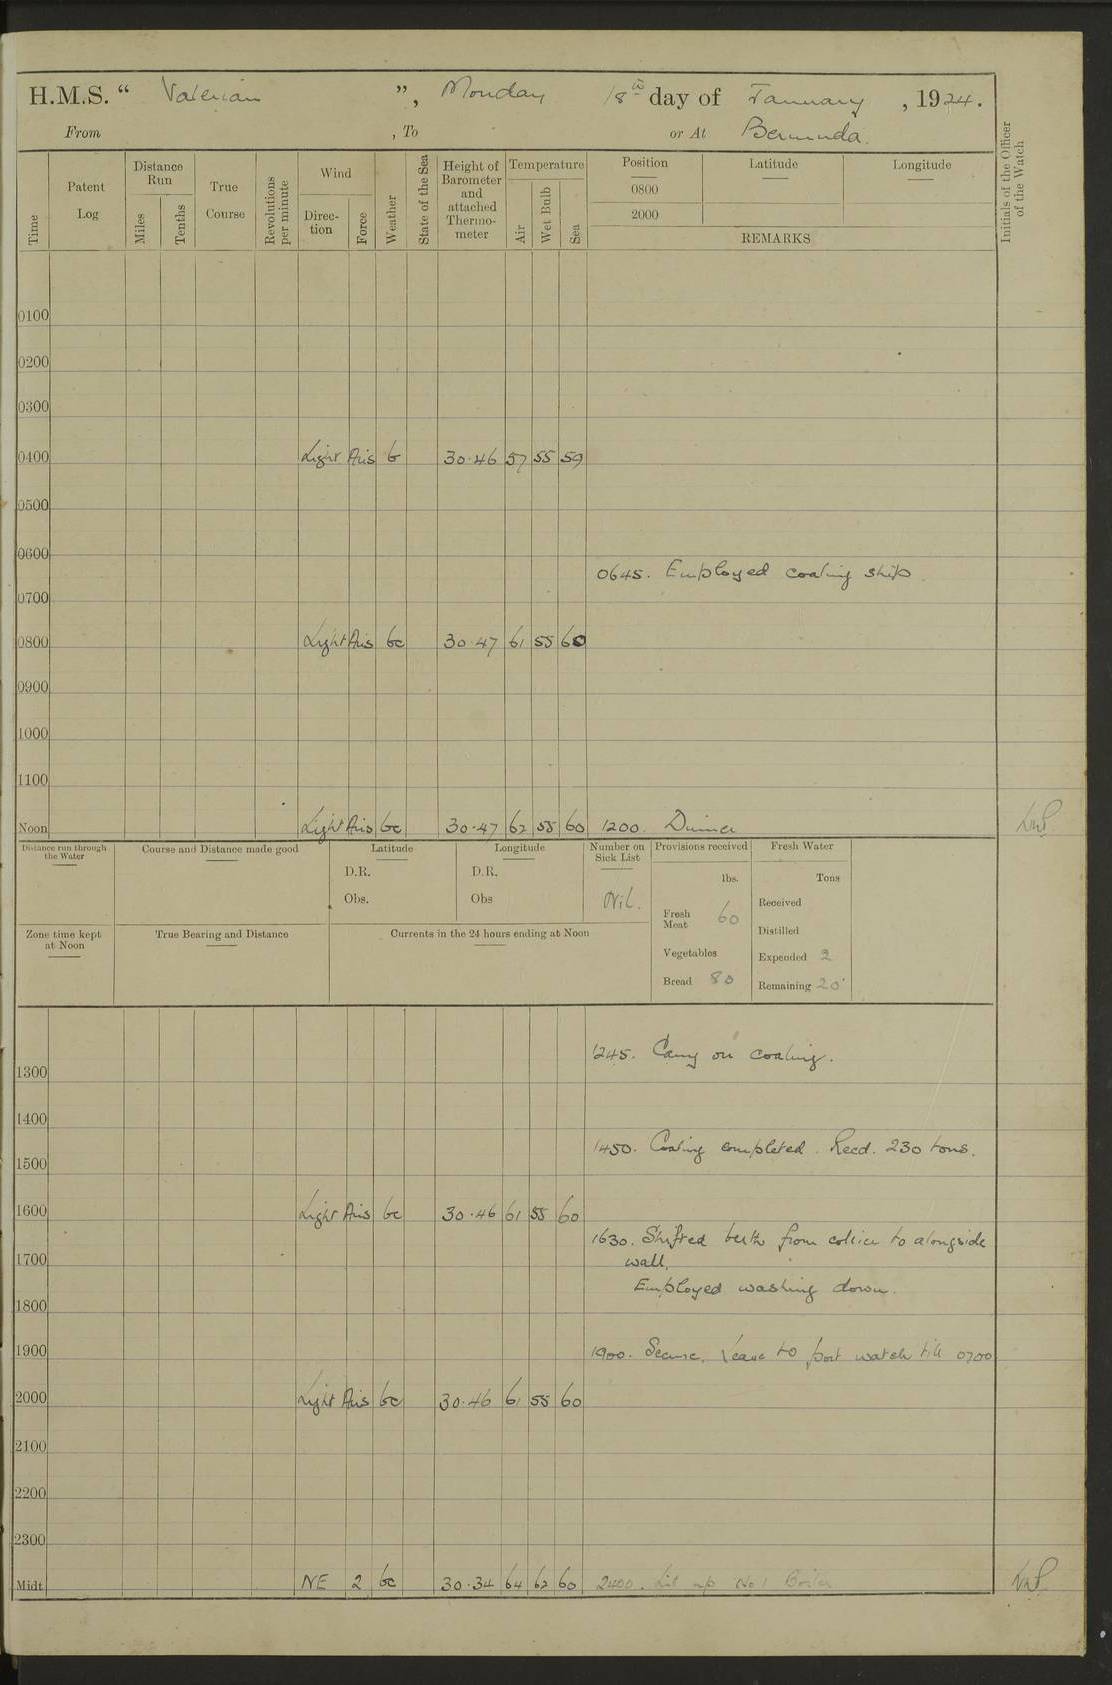 H.M.S. “ Valerian ”, Monday 18th day of January, 1924.
From , To or At Bermuda.
Time
Patent Log
Distance Run
Miles
Tenths
True Course
Revolutions per minute
Wind
Direc-tion
Force
Weather
State of the Sea
Height of Barometer and attached Thermo-meter
Temperature
Air
Wet Bulb
Sea
Position
Latitude
Longitude
0800
2000
REMARKS
Initials of the Officer of the Watch
0100
0200
0300
0400 Light Airs b 30.46 57 55 59
0500
0600
0645. Employed coaling ship.
0700
0800 Light Airs bc 30.47 61 55 60
0900
1000
1100
Noon Light Airs bc 30.47 62 55 60 1200. Dinner
Distance run through the Water
Course and Distance made good
Latitude
D.R.
Obs.
Longitude
D.R.
Obs
Number on Sick List
Nil.
Provisions received
lbs.
Fresh Meat 60
Vegetables
Bread 80
Fresh Water
Tons
Received
Distilled
Expended 2
Remaining 20
Zone time kept at Noon
True Bearing and Distance
Currents in the 24 hours ending at Noon
1245. Carry on coaling.
1300
1400
1450. Coaling completed. Recd. 230 tons.
1500
1600 Light Airs bc 30.46 61 55 60
1630. Shifted berth from collier to alongside
wall.
1700
Employed washing down.
1800
1900 1900. Secure. Leave to port watch till 0700
2000 Light Airs bc 30.46 61 55 60
2100
2200
2300
Midt. NE 2 bc 30.34 64 62 60 2400. Lit up No 1 Boiler